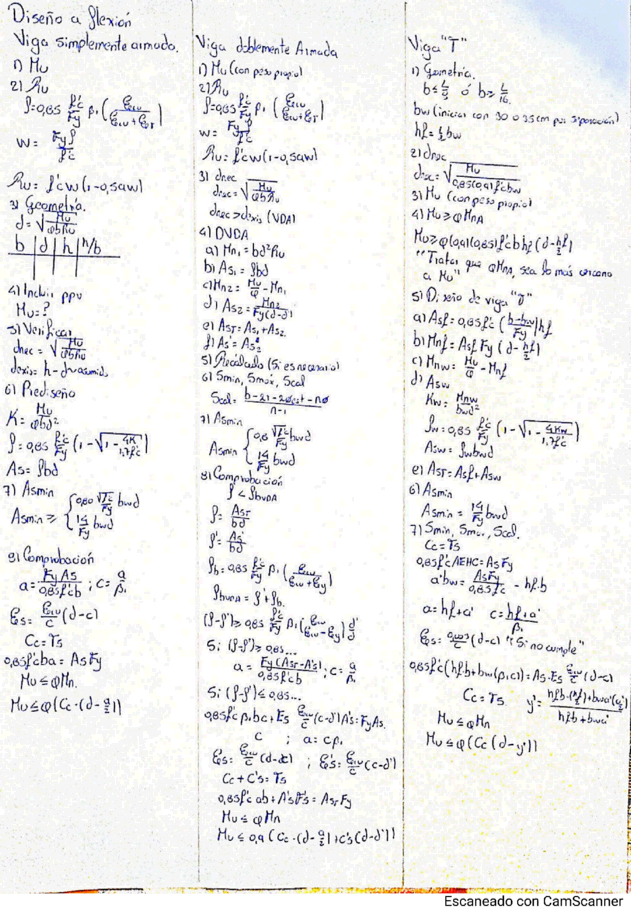 Diseño a flexión
Viga simplemente armada.
1) Mu
2) Ru
ρ=0,85 f'c/Fy β1 (Ecu/(Ecu+Et))
w= Fy ρ/f'c
Ru= f'c w(1-0,59w)
3) Geometría.
d=√(Mu/φbRu)
b | d | h | h/b
4) Incluir ppv
Mu=?
5) Verificar
dnec = √(Mu/φbRu)
dexis= h-drasumid.
6) Prediseño
K= Mu/φbd²
ρ=0,85 f'c/Fy (1-√(1-4K/1,7f'c))
As= ρbd
7) Asmin
Asmin ≥ { 0,80 √f'c/Fy bwd
14/Fy bwd
8) Comprobación
a= FyAs/0,85f'cb ; c= a/β1
Es= Ecu/c (d-c)
Cc=Ts
0,85f'cba= AsFy
Mu≤φMn.
Mu≤φ[Cc·(d-a/2)]
Viga doblemente Armada
1) Mu (con peso propio)
2) Ru
ρ=0,85 f'c/Fy β1 (Ecu/(Ecu+Et))
w= Fy ρ/f'c
Ru= f'c w(1-0,59w)
3) dnec
dnec=√(Mu/φbRu)
dnec>dexis (VDA)
4) DVDA
a) Mn1=bd²Ru
b) As1= ρbd
c) Mn2= Mu/φ - Mn1
d) As2= Mn2/Fy(d-d')
e) AsT=As1+As2.
f) As'= As2
5) Recálculo (Si es necesario)
6) Smin, Smax, Scal
Scal= (b-2r-2φest-nφ)/(n-1)
7) Asmin
Asmin { 0,8 √f'c/Fy bwd
14/Fy bwd
8) Comprobación
ρ<ρbVDA
ρ= AsT/bd
ρ'= As'/bd
ρb=0,85 f'c/Fy β1 (Ecu/(Ecu+Ey))
ρbVDA= ρ'+ρb.
(ρ-ρ')≥0,85 f'c/Fy β1(Ecu/(Ecu-Ey)) d'/d
Si (ρ-ρ')≥0,85...
a= Fy(AsT-A's)/0,85f'cb ; c= a/β1
Si (ρ-ρ')≤0,85...
0,85f'c β1bc+Es Ecu/c (c-d')A's=FyAs.
c ; a=cβ1
Es= Ecu/c (d-c) ; E's= Ecu/c (c-d')
Cc+C's=Ts
0,85f'c ab+A'sf's= AsTFy
Mu≤φMn
Mu≤0,9[Cc·(d-a/2)+C's(d-d')]
Viga "T"
1) Geometría.
b≤ L/4 ó b≥ L/16.
bw (iniciar con 30 o 35cm por separación)
hf= ½bw
2) dnec
dnec=√(Mu/0,85(0,9)f'cbw)
3) Mu (con peso propio)
4) Mu≥φMnA
Mu≥φ(0,9)(0,85)f'cbhf(d-hf/2)
"Tratar que φMnA, sea lo más cercano
a Mu"
5) Diseño de viga "T"
a) Asf=0,85f'c((b-bw)/Fy)hf
b) Mnf=AsfFy(d-hf/2)
c) Mnw= Mu/φ - Mnf
d) Asw
Kw= Mnw/bwd²
ρw=0,85 f'c/Fy (1-√(1-4Kw/1,7f'c))
Asw= ρwbwd
e) AsT=Asf+Asw
6) Asmin
Asmin= 14/Fy bwd
7) Smin, Smax, Scal.
Cc=Ts
0,85f'cAEHC=AsFy
a'bw= AsFy/0,85f'c - hf·b
a=hf+a' c= (hf+a')/β1
Es= 0,003/c (d-c) "Si no cumple"
0,85f'c(hf·b+bw(β1c))=As·Es Ecu/c (d-c)
Cc=Ts y'= (hf·b·(hf/2)+bwa'(a'/2))/(hf·b+bwa')
Mu≤φMn
Mu≤φ[Cc(d-y')]
Escaneado con CamScanner